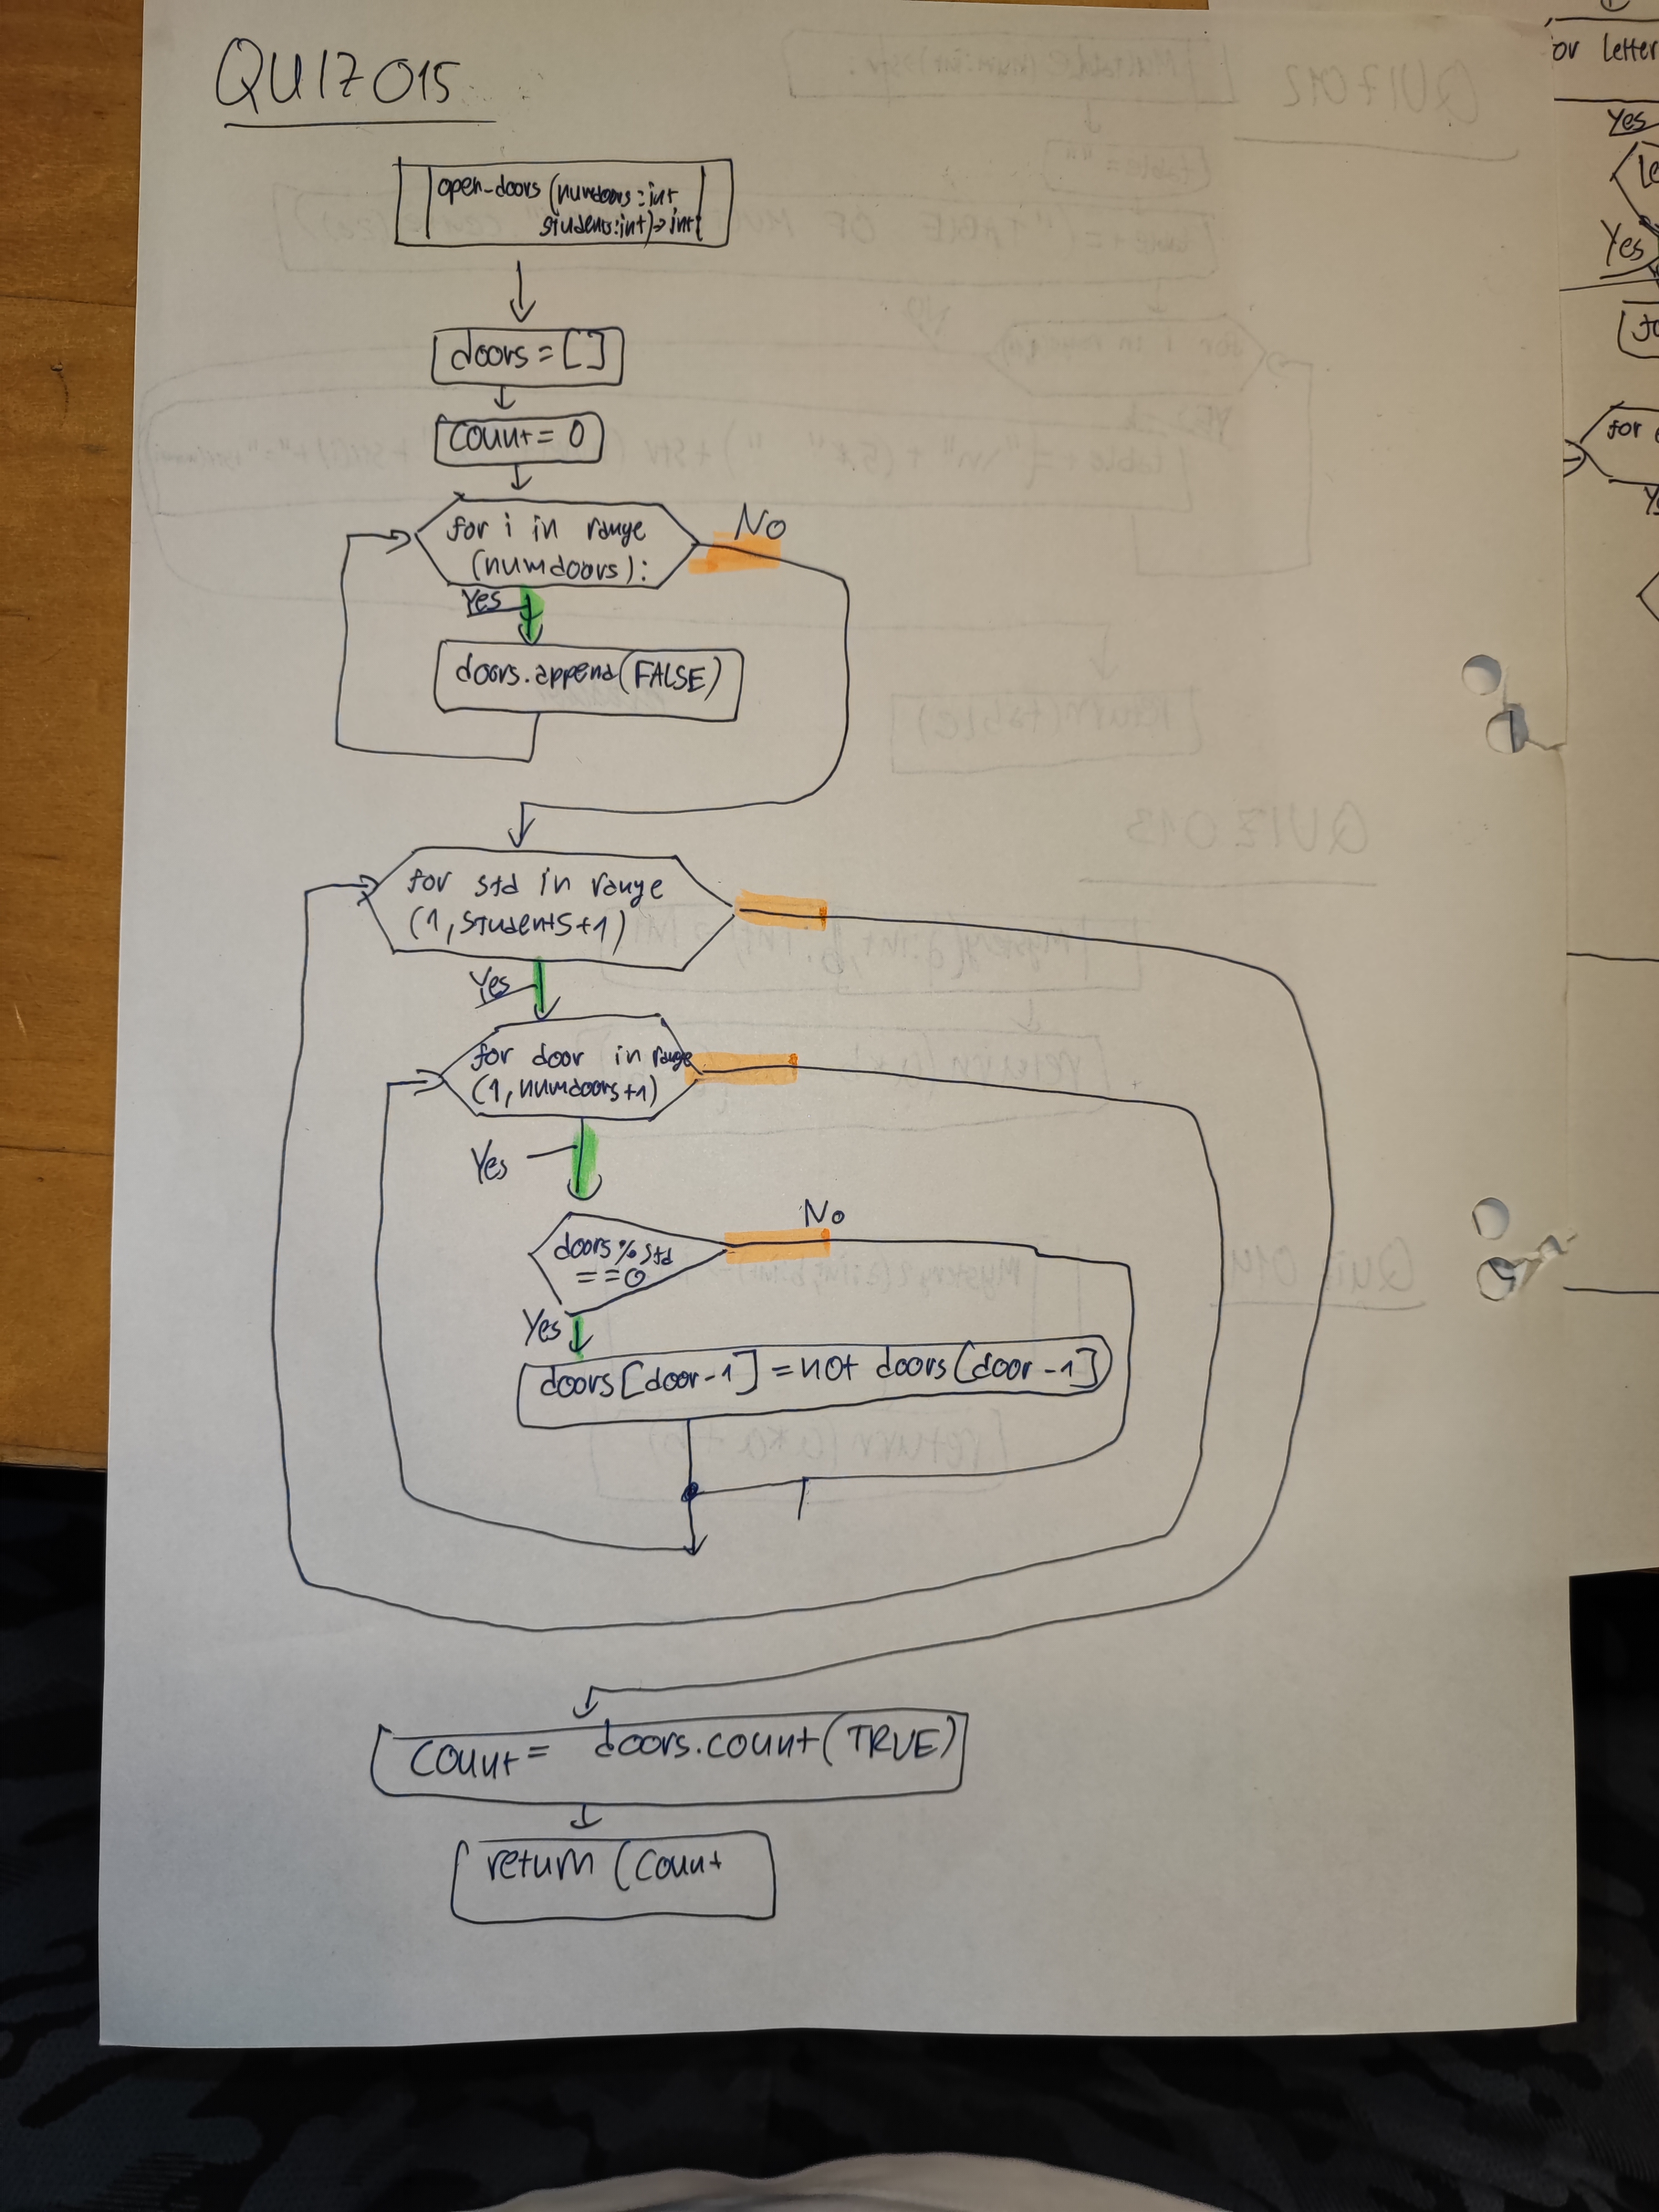 QUIZ 015
open-doors (numdoors:int
students:int)->int
doors = []
count = 0
for i in range
(numdoors):
No
Yes
doors.append(FALSE)
for std in range
(1, students+1)
Yes
for door in range
(1, numdoors+1)
Yes
doors % std
==0
No
Yes
doors[door-1] = not doors[door-1]
count = doors.count(TRUE)
return (count
or letter
Yes
Yes
for